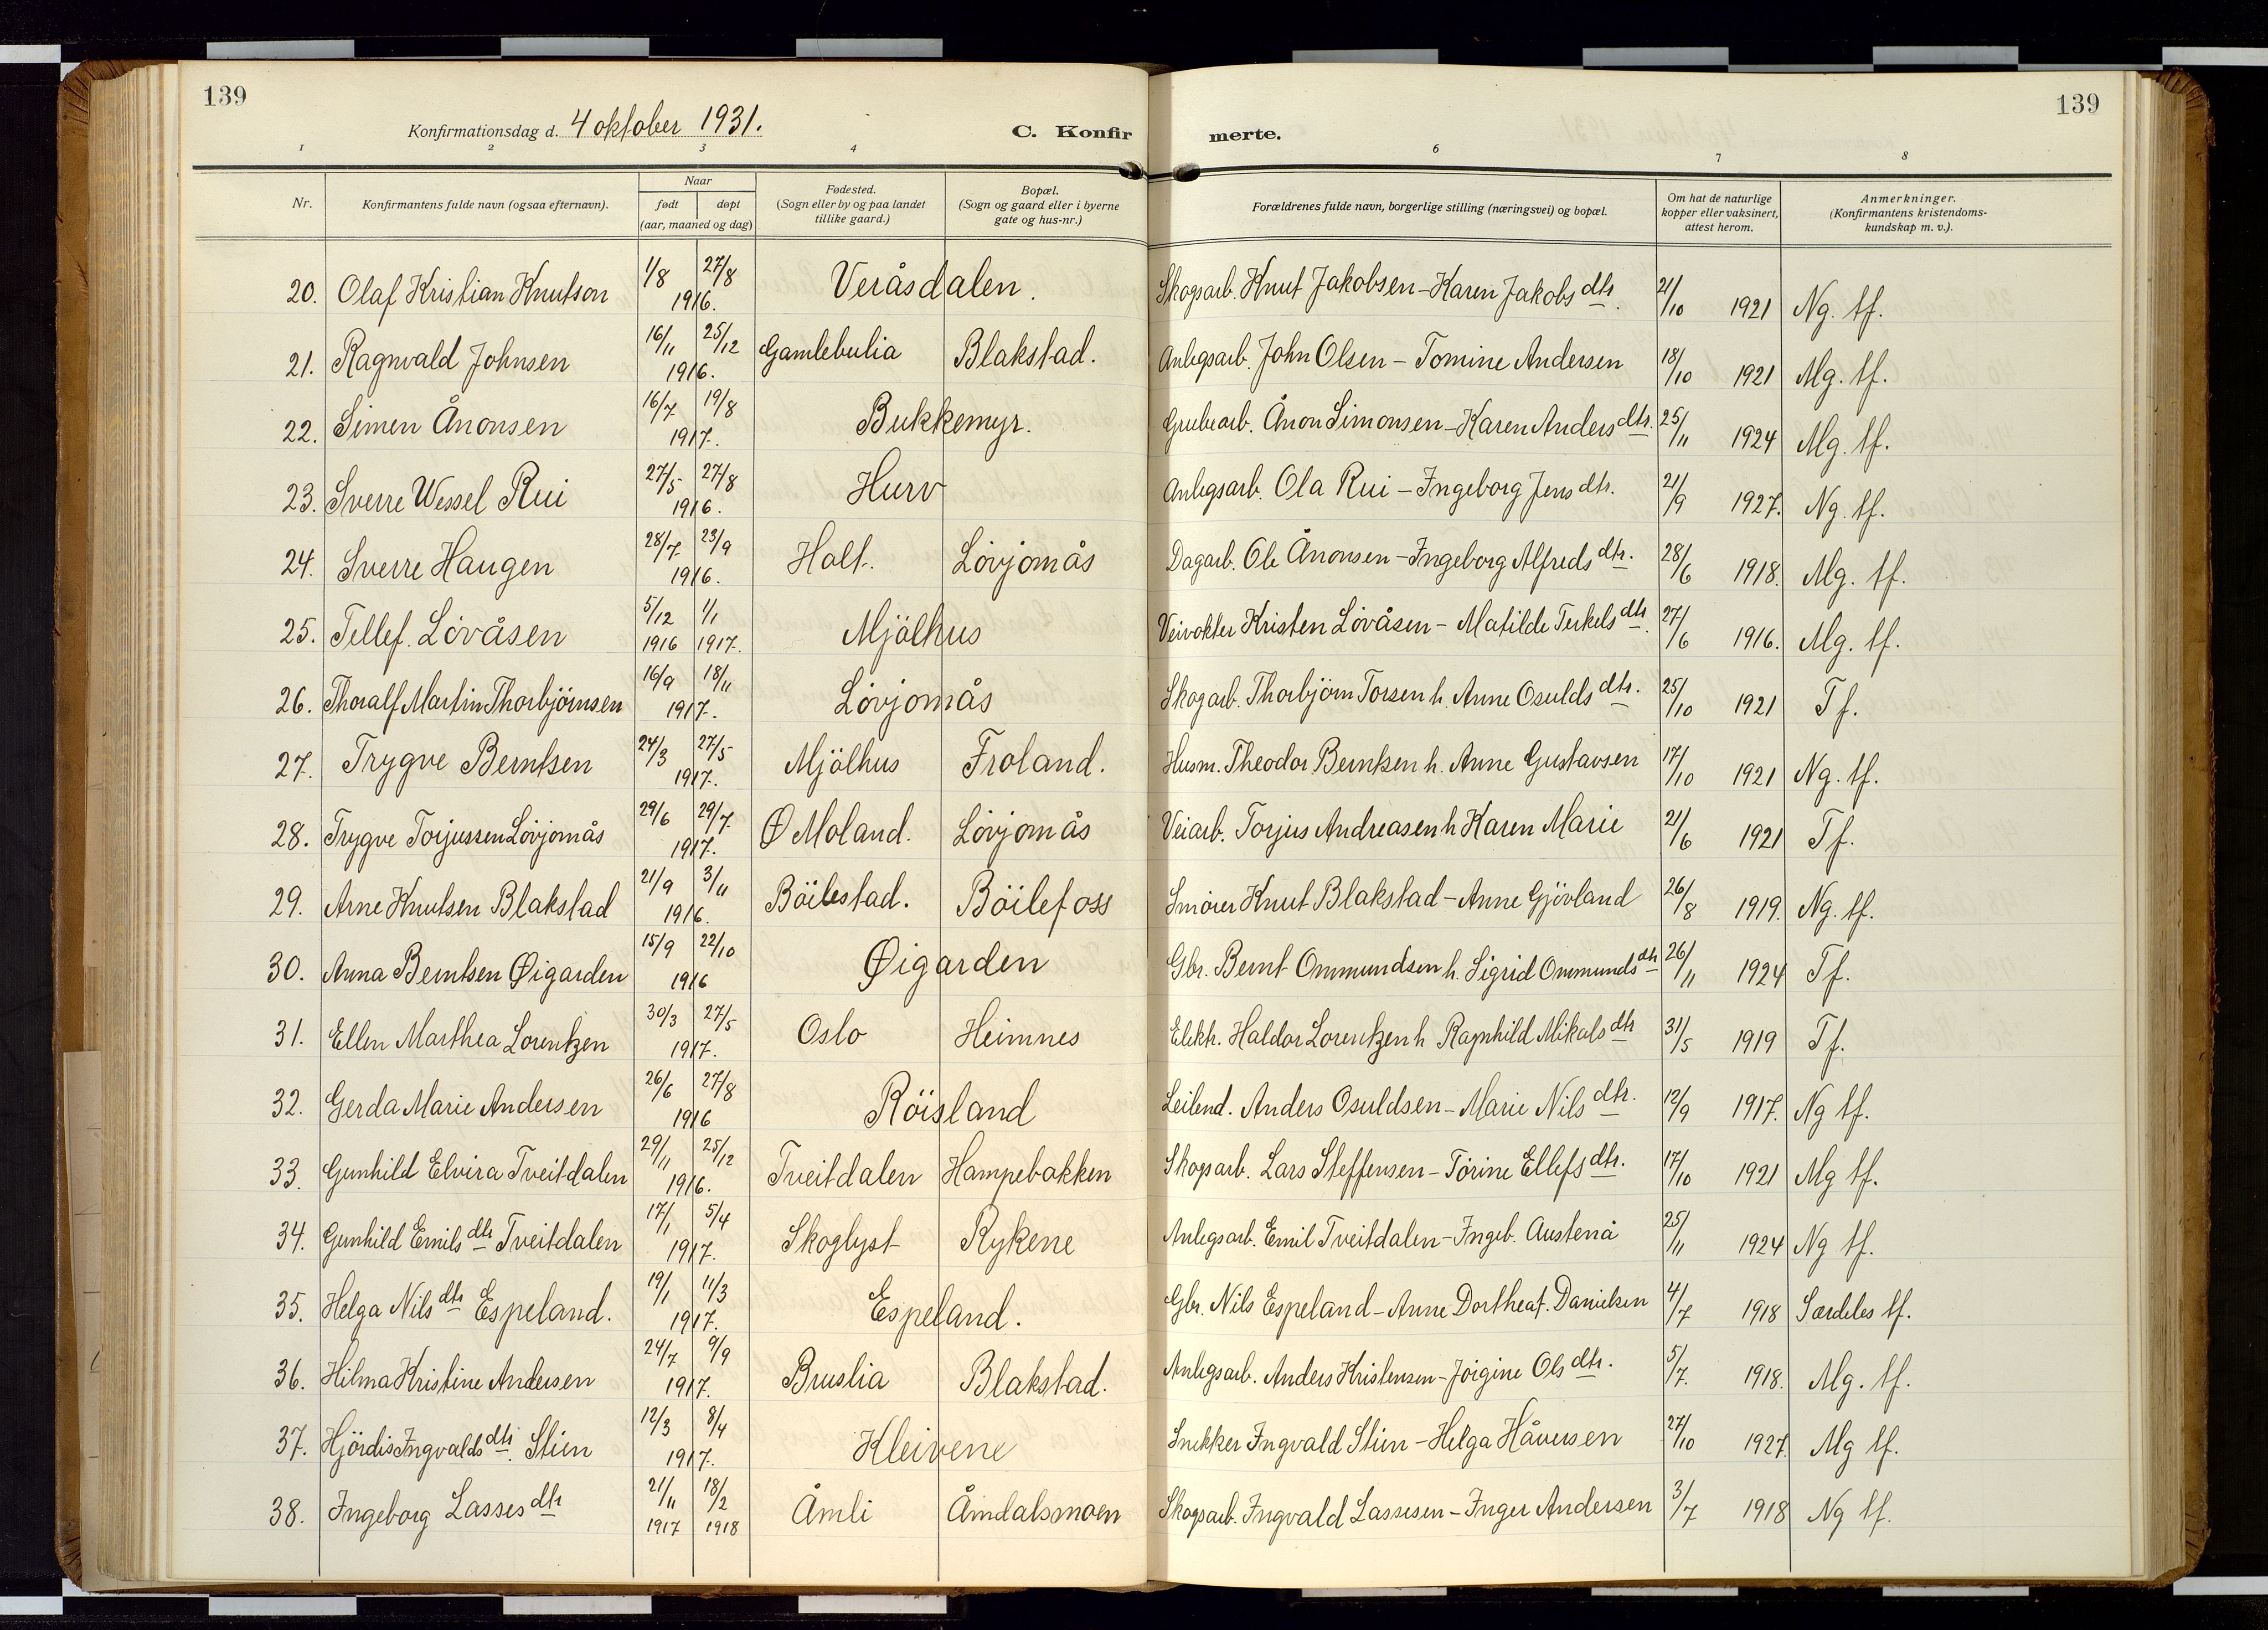 139
139
Konfirmationsdag d. 4 oktober 1931.
C. Konfir
merte.
1 2 3 4 6 7 8
Nr.
Konfirmantens fulde navn (ogsaa efternavn).
Naar
født døpt
(aar, maaned og dag)
Fødested.
(Sogn eller by og paa landet
tillike gaard.)
Bopæl.
(Sogn og gaard eller i byerne
gate og hus-nr.)
Forældrenes fulde navn, borgerlige stilling (næringsvei) og bopæl.
Om hat de naturlige
kopper eller vaksinert,
attest herom.
Anmerkninger.
(Konfirmantens kristendoms-
kundskap m. v.).
20. Olaf Kristian Knutson 1/8 27/8 1916. Veråsdalen. Skogsarb. Knut Jakobsen - Karen Jakobsdtr. 21/10 1921 Ng. tf.
21. Ragnvald Johnsen 16/11 25/12 1916. Gamlebulia Blakstad. Anlegsarb. John Olsen - Tomine Andersen 18/10 1921 Mg. tf.
22. Simen Ånonsen 16/7 19/8 1917. Bukkemyr. Grubearb. Ånon Simonsen - Karen Andersdtr. 25/11 1924 Mg. tf.
23. Sverre Wessel Rui 27/5 27/8 1916. Hurv Anlegsarb. Ola Rui - Ingeborg Jensdtr. 21/9 1927. Ng. tf.
24. Sverre Haugen 28/7 23/9 1916. Holt. Lövjomås Dagarb. Ole Ånonsen - Ingeborg Alfredsdtr. 28/6 1918. Mg. tf.
25. Tellef. Lövåsen 5/12 1916 1/1 1917. Mjölhus Veivokter Kristen Lövåsen - Matilde Terkelsdtr. 27/6 1916. Mg. tf.
26. Thoralf Martin Thorbjörnsen 16/9 18/11 1917. Lövjomås Skogarb. Thorbjörn Torsen h. Anne Osuldsdtr. 25/10 1921 Tf.
27. Trygve Berntsen 24/3 27/5 1917. Mjölhus Froland. Husm. Theodor Berntsen h. Anne Gustavsen 17/10 1921 Ng. tf.
28. Trygve Torjussen Lövjomås 29/6 29/7 1917. Ø Moland. Lövjomås Veiarb. Torjus Andreasen h Karen Marie 21/6 1921 Tf.
29. Arne Knutsen Blakstad 21/9 3/11 1916. Böilestad. Böilefoss Smörer Knut Blakstad - Anne Gjövland 26/8 1919. Ng. tf.
30. Anna Berntsen Øigarden 15/9 22/10 1916 Øigarden Gbr. Bernt Ommundsen h. Sigrid Ommundsdtr 26/11 1924 Tf.
31. Ellen Marthea Lorentzen 30/3 27/5 1917. Oslo Heimnes Elektr. Haldor Lorentzen h Ragnhild Mikalsdtr 31/5 1919 Tf.
32. Gerda Marie Andersen 26/6 27/8 1916 Röisland Leilend. Anders Osuldsen - Marie Nilsdtr. 12/9 1917. Ng tf.
33. Gunhild Elvira Tveitdalen 29/11 25/12 1916. Tveitdalen Hampebakken Skogsarb. Lars Steffensen - Törine Ellefsdtr. 17/10 1921 Mg tf.
34. Gunhild Emilsdtr Tveitdalen 17/1 5/4 1917. Skoglyst Rykene Anlegsarb. Emil Tveitdalen - Ingeb. Austenå 25/11 1924 Ng tf.
35. Helga Nilsdtr Espeland. 19/1 11/3 1917. Espeland. Gbr. Nils Espeland - Anne Dorthea f. Danielsen 4/7 1918 Særdeles tf.
36. Hilma Kristine Andersen 24/7 9/9 1917. Bruslia Blakstad. Anlegsarb. Anders Kristensen - Jörgine Olsdtr. 5/7. 1918. Mg. tf.
37. Hjördis Ingvaldsdtr. Stien 12/3 8/4 1917. Kleivene Snekker Ingvald Stien - Helga Håversen 27/10 1927. Mg tf.
38. Ingeborg Lassesdtr 21/11 1917 18/2 1918 Åmli Åmdalsmoen Skogsarb. Ingvald Lassesen - Inger Andersen 3/7 1918 Ng tf.